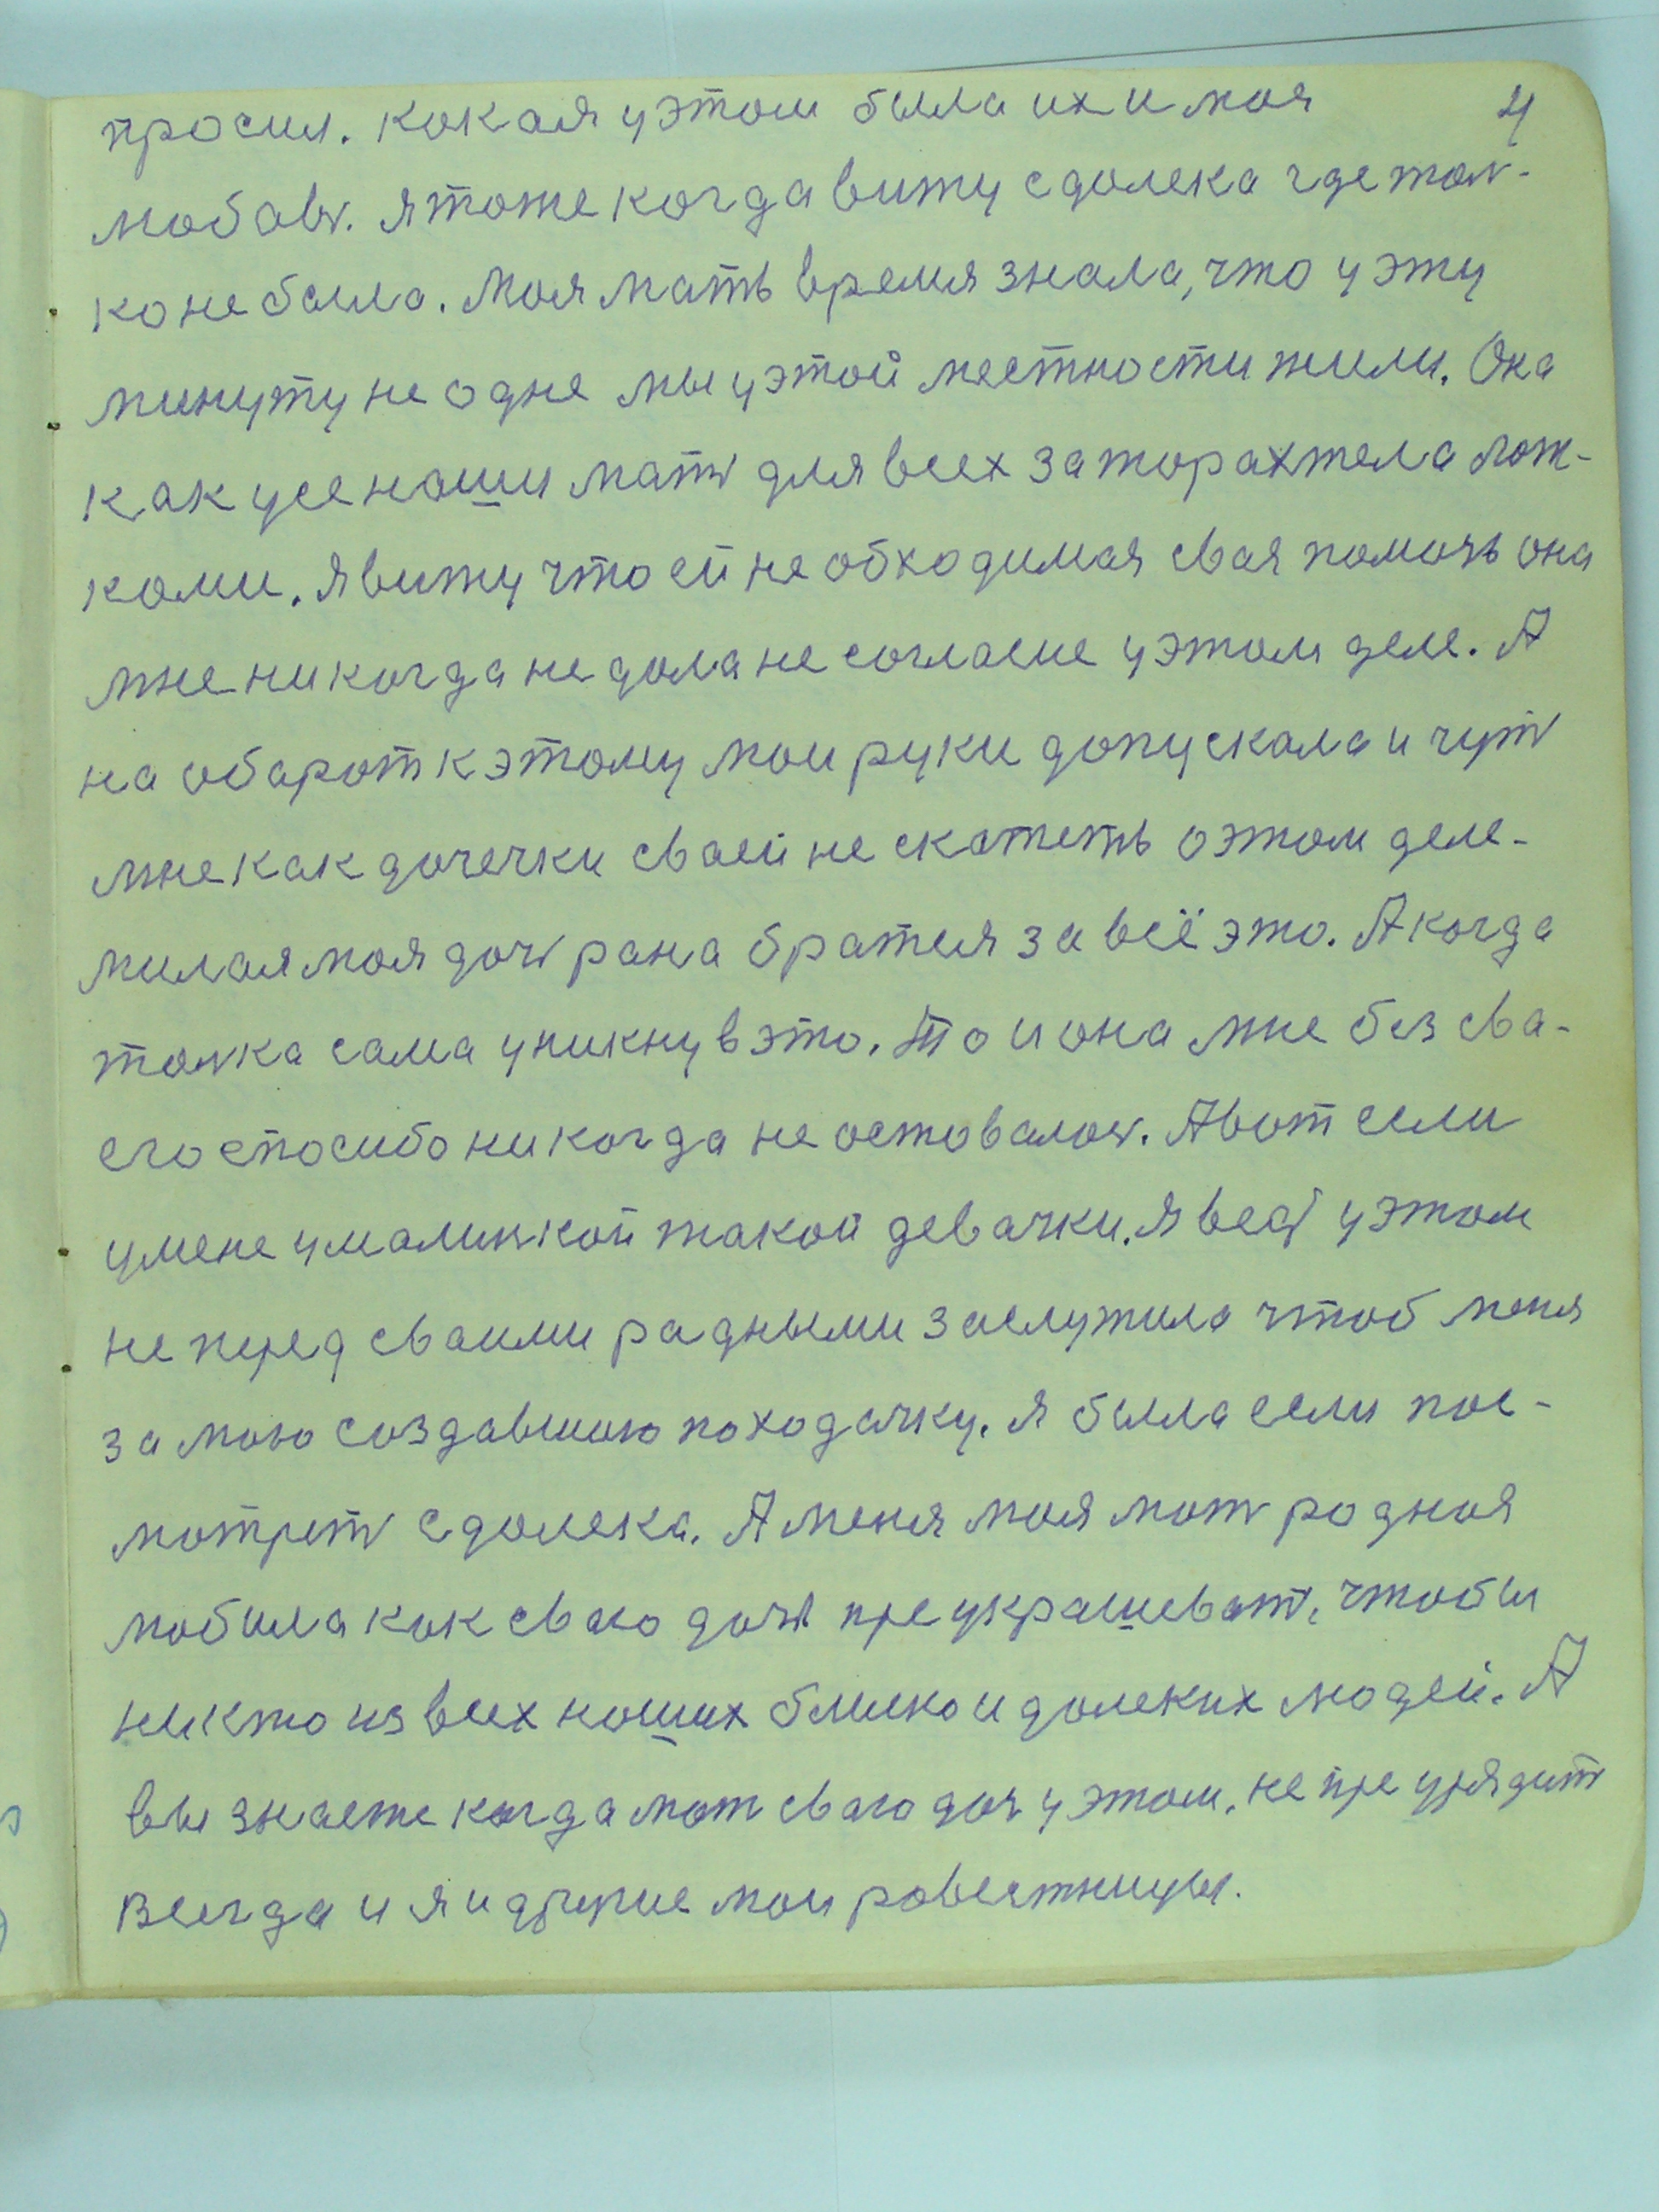 просил. какая у этом была их и моя 4
любовь. я тоже когда вижу сдолека где толь-
ко не была. Моя мать время знала, что у эту
минуту не одне мы у этой местности жили. Она
как усе наши мать для всех заторахтела лож-
ками. Я вижу что ей необходимая свая помочь она
мне никогда не дола не согласие у этом деле. А
на обарот к этому мои руки допускала и чуть
мне как дочечки сваей не скажеть о этом деле-
милая моя дочь рана братся за всё это. А когда
толька сама уникну в это. То и она мне без сва-
его спосибо никогда не оставалось. А вот если
умене у малинькой такой девачки. Я ведь у этом
не перед сваими радными заслужила чтоб меня
за мою создавшию походачку. Я была если пос-
мотреть сдолека. А меня моя мать родная
любила как сваю дочь преукрашевать, чтобы
никто из всех наших близко и далеких людей. А
вы знаете когда мать сваю доч у этом, не преурядить
Всегда и я и другие мои ровестницы.